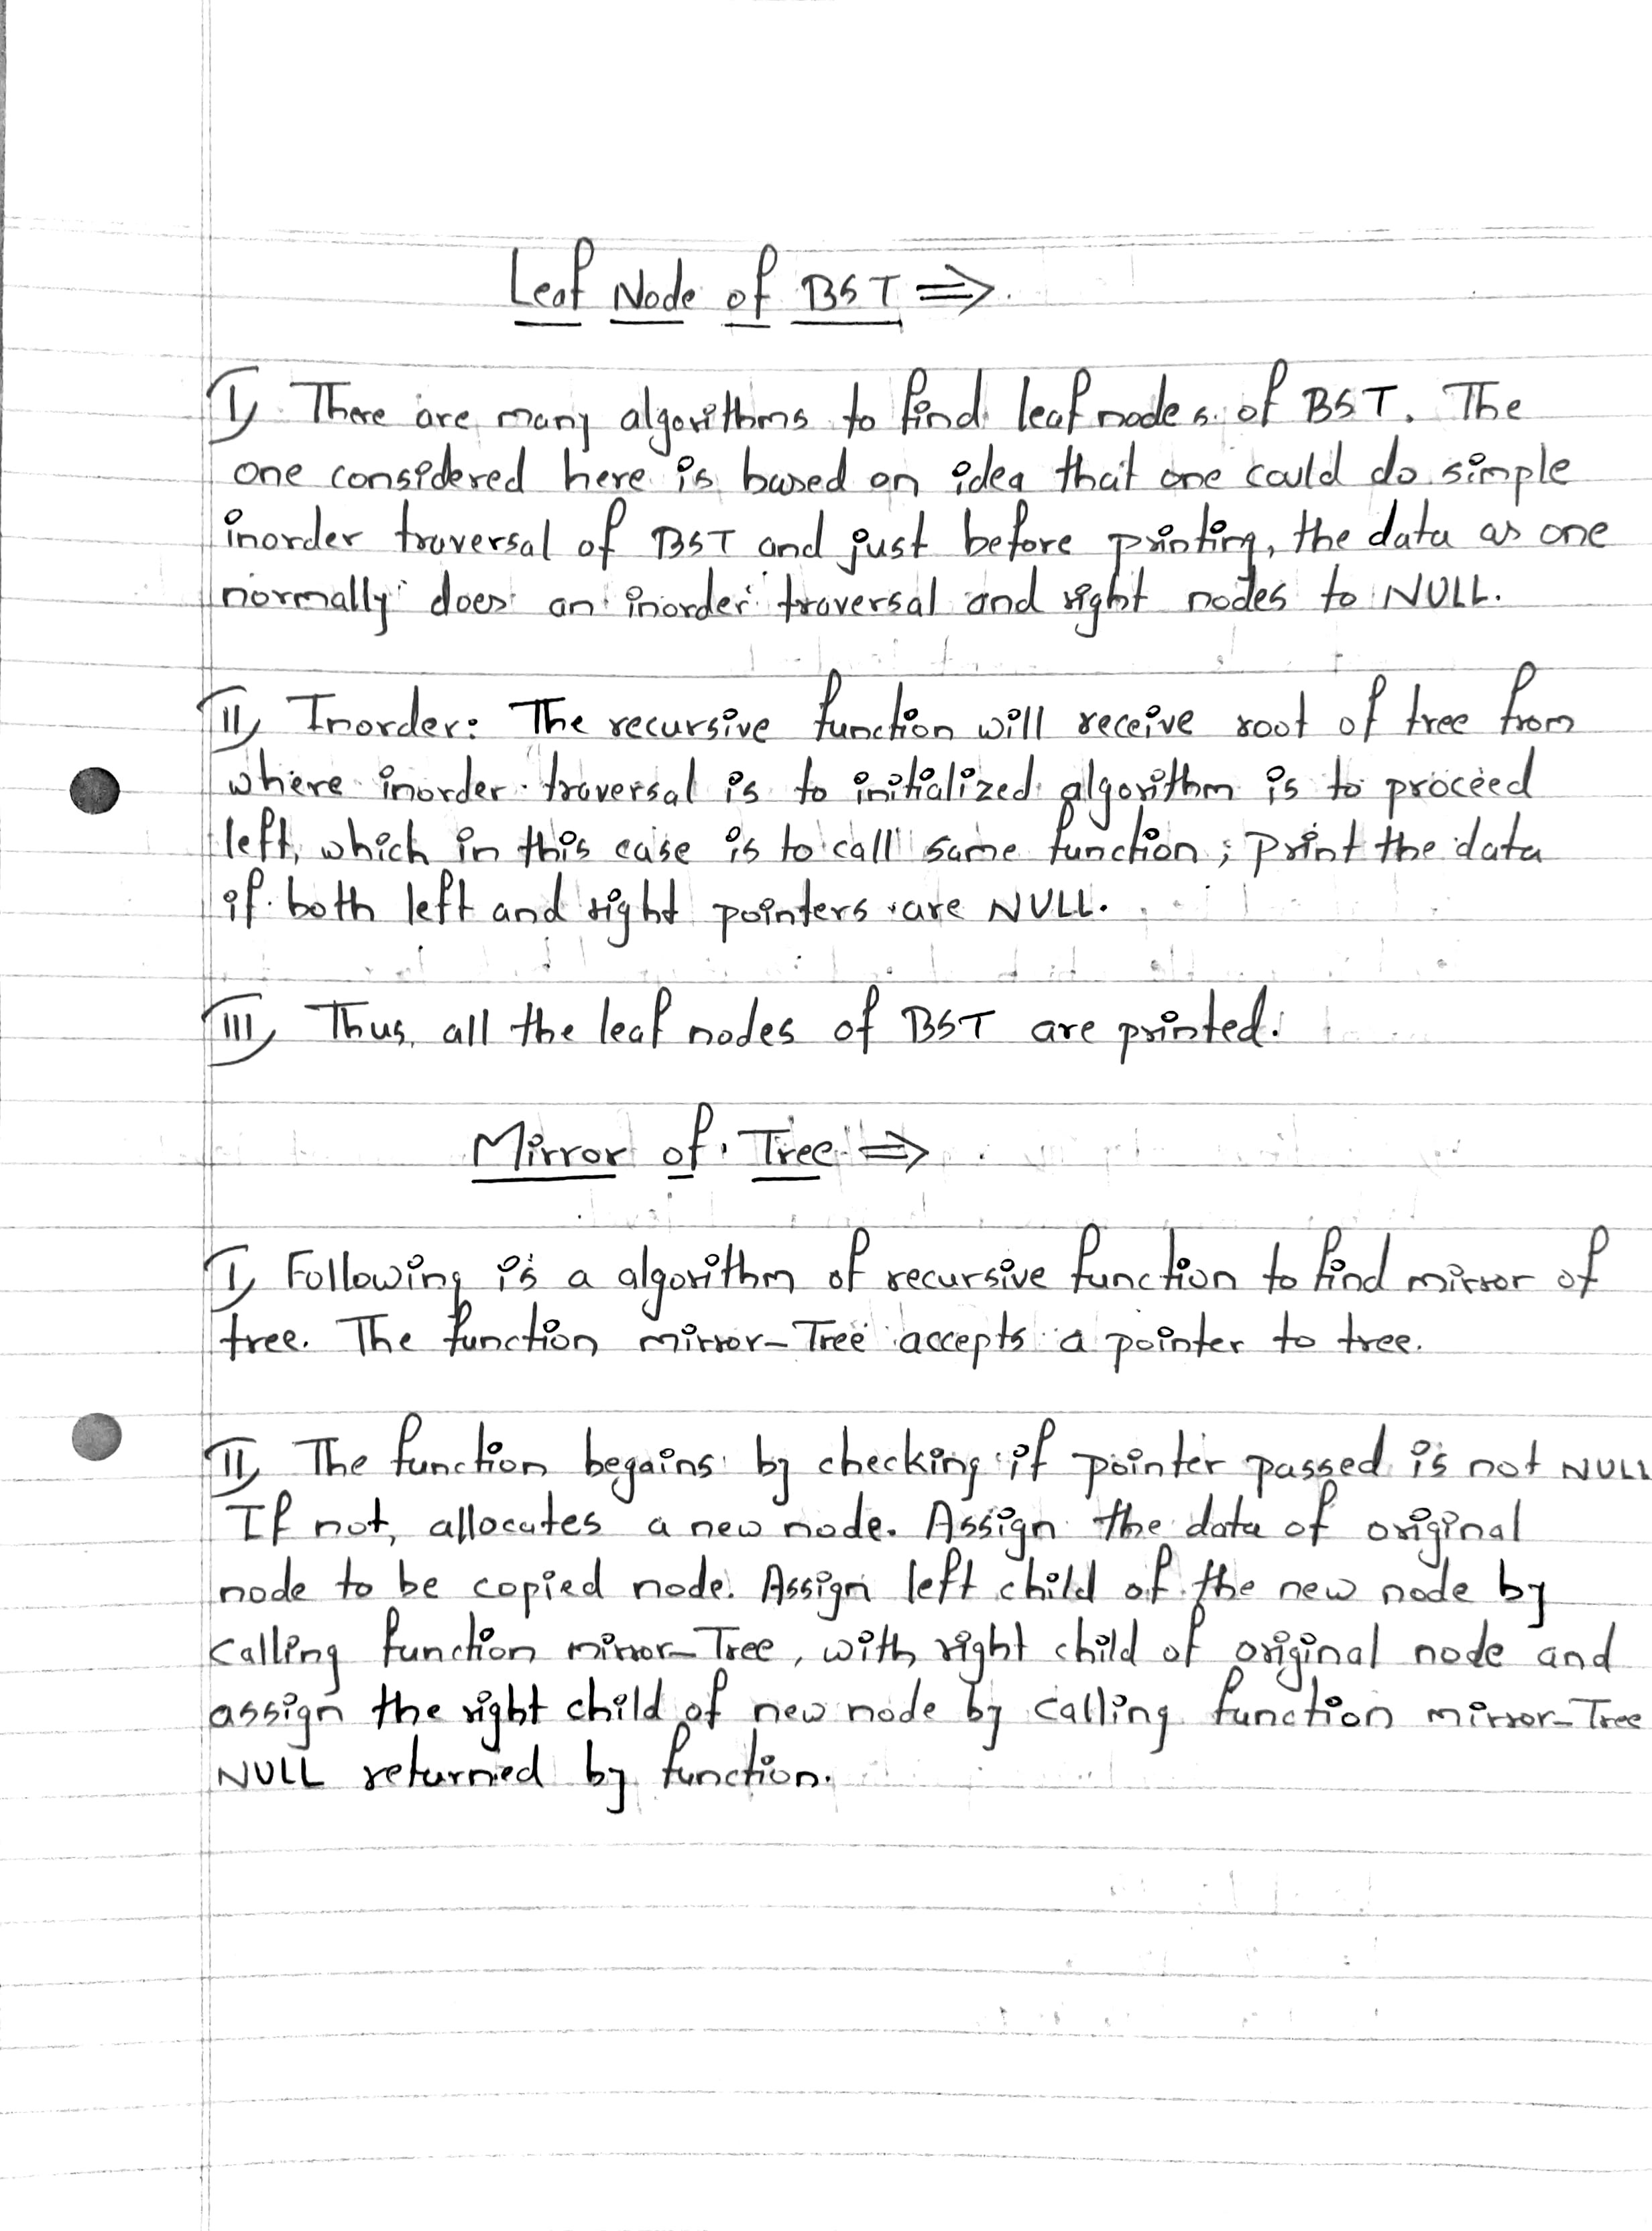 Leaf Node of BST ⇒
I) There are many algorithms to find leaf nodes of BST. The
one considered here is based on idea that one could do simple
inorder traversal of BST and just before printing, the data as one
normally does an inorder traversal and right nodes to NULL.
II) Inorder: The recursive function will receive root of tree from
where inorder traversal is to initialized algorithm is to proceed
left, which in this case is to call same function; print the data
if both left and right pointers are NULL.
III) Thus, all the leaf nodes of BST are printed.
Mirror of Tree ⇒
I) Following is a algorithm of recursive function to find mirror of
tree. The function mirror-Tree accepts a pointer to tree.
II) The function begains by checking if pointer passed is not NULL
If not, allocates a new node. Assign the data of original
node to be copied node. Assign left child of the new node by
calling function mirror-Tree, with right child of original node and
assign the right child of new node by calling function mirror-Tree
NULL returned by function.